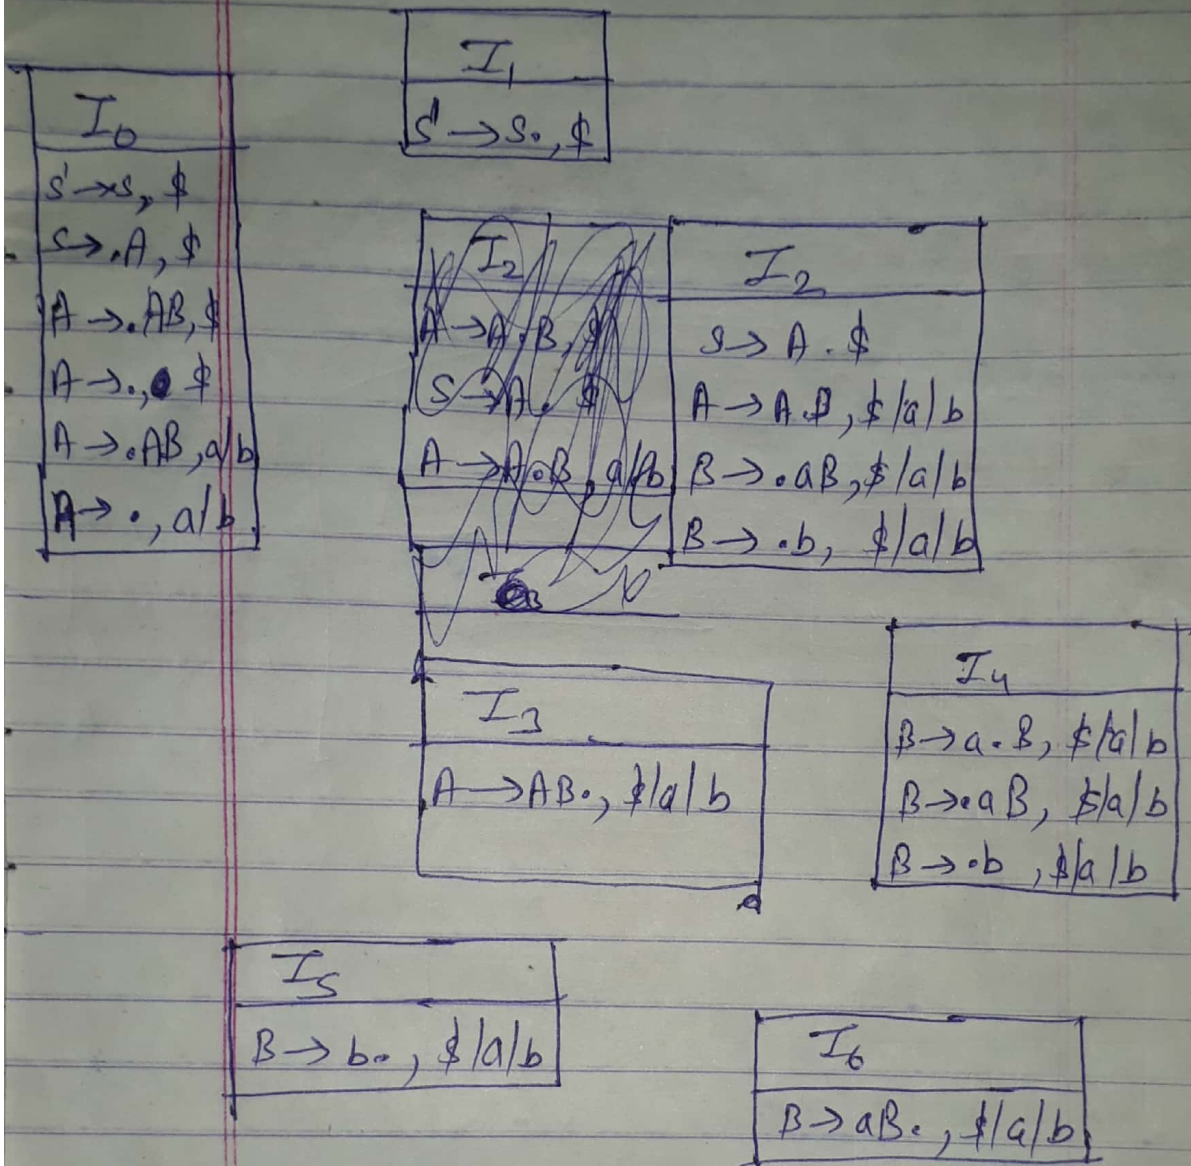 I₁
S' → S., $
I₀
S' → S, $
S → .A, $
A → .AB, $
A → ., $
A → .AB, a/b
A → ., a/b
I₂
A → A.B, $
S → A. $
A → A.B, a/b
I₂
S → A . $
A → A.B, $/a/b
B → .aB, $/a/b
B → .b, $/a/b
I₃
A → AB., $/a/b
I₄
B → a.B, $/a/b
B → .aB, $/a/b
B → .b, $/a/b
I₅
B → b., $/a/b
I₆
B → aB., $/a/b